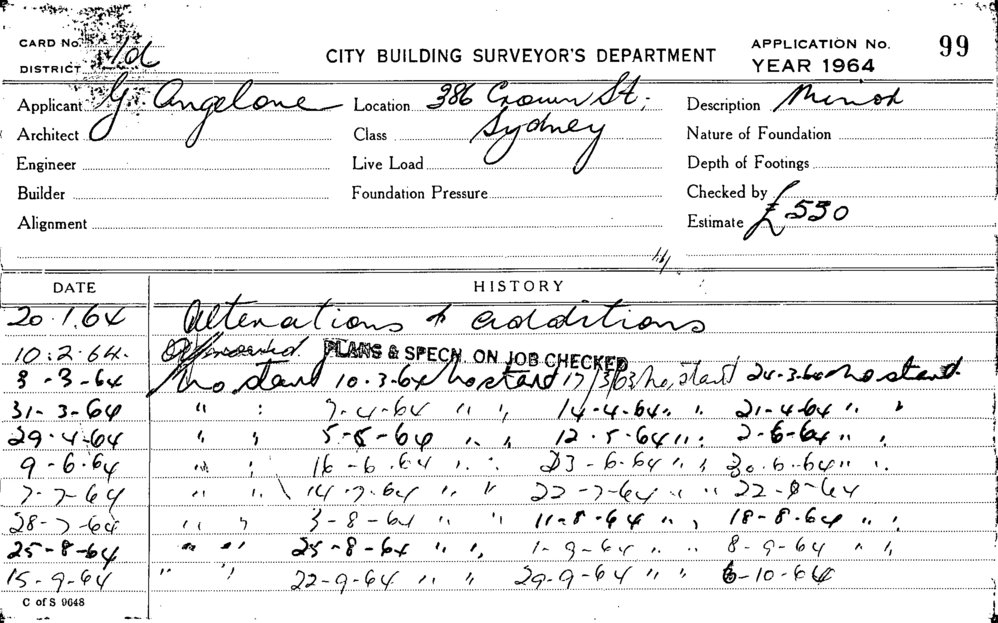 CARD No.
DISTRICT
CITY BUILDING SURVEYOR'S DEPARTMENT
APPLICATION No. 99
YEAR 1964
Applicant G. Angelone Location 386 Crown St, Description Minor
Architect Class Sydney Nature of Foundation
Engineer Live Load Depth of Footings
Builder Foundation Pressure Checked by
Alignment Estimate £550
DATE HISTORY
20.1.64 Alterations & additions
10.2.64. PLANS & SPECN. ON JOB CHECKED
3-3-64 No start 10.3.64 No start 17/3/63 No start 24-3-64 No start
31-3-64 " " 7-4-64 " " 14-4-64 " " 21-4-64 " "
29.4.64 " " 5-5-64 " " 12.5.64 " " 2-6-64 " "
9-6-64 " " 16-6.64 " " 23-6-64 " " 30.6.64 " "
7-7-64 " " 14.7.64 " " 22-7-64 " " 22-8-64
28-7-64 " " 3-8-64 " " 11-8-64 " " 18-8-64 " "
25-8-64 " " 25-8-64 " " 1-9-64 " " 8-9-64 " "
15-9-64 " " 22-9-64 " " 29-9-64 " " 6-10-64
C of S 9648